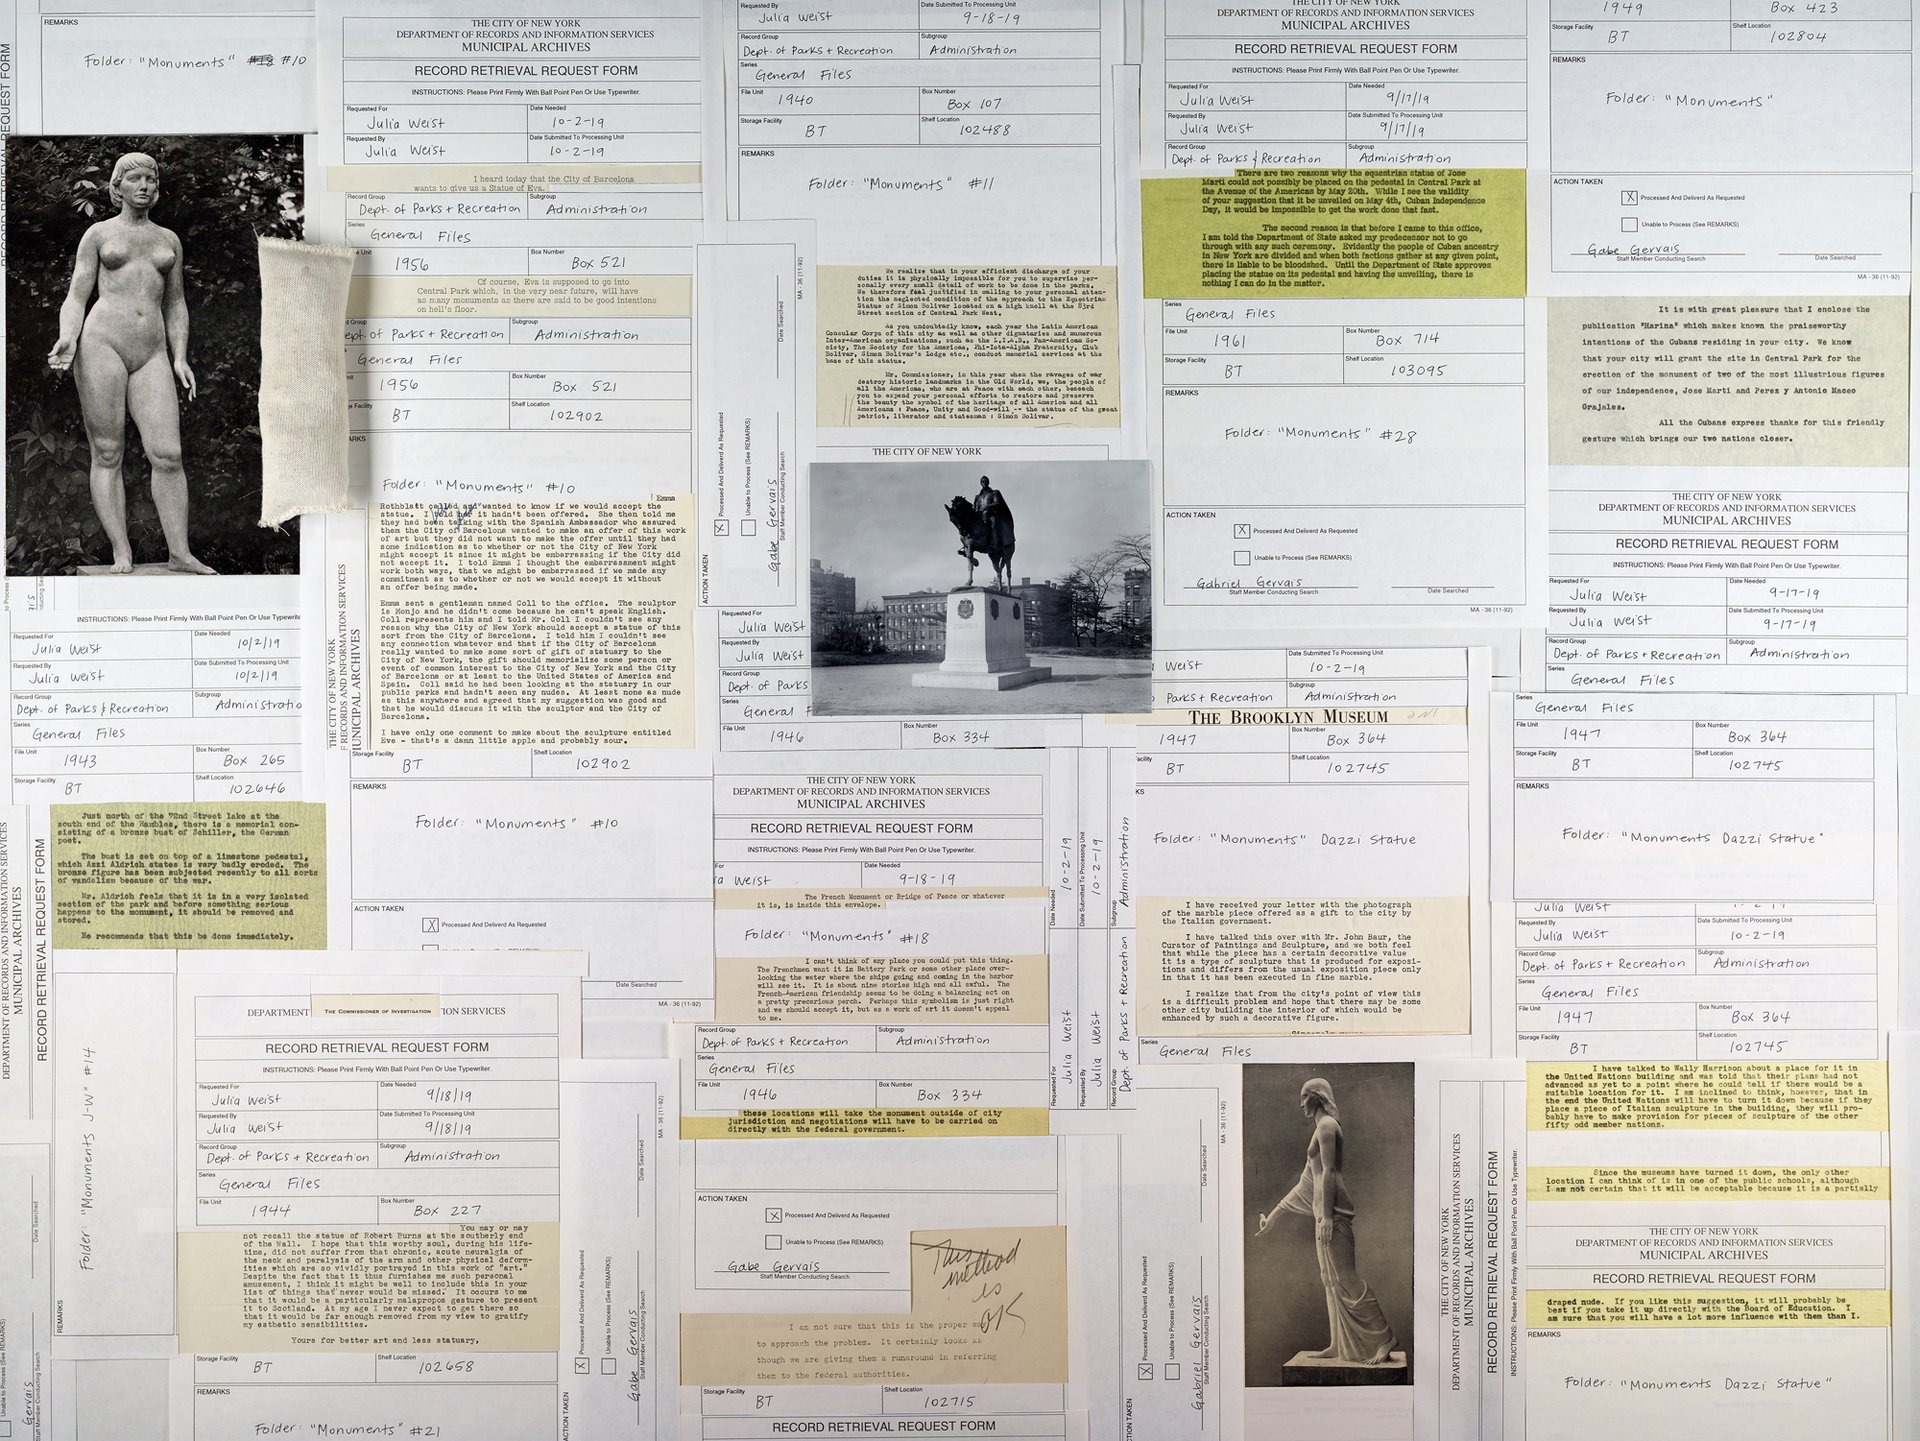 REMARKS
Folder: "Monuments" #10
THE CITY OF NEW YORK
DEPARTMENT OF RECORDS AND INFORMATION SERVICES
MUNICIPAL ARCHIVES
RECORD RETRIEVAL REQUEST FORM
INSTRUCTIONS: Please Print Firmly With Ball Point Pen Or Use Typewriter.
Requested For
Julia Weist
Date Needed
10-2-19
Requested By
Julia Weist
Date Submitted To Processing Unit
10-2-19
I heard today that the City of Barcelona
wants to give us a Statue of Eva.
Record Group
Dept. of Parks + Recreation
Subgroup
Administration
Series
General Files
1956
Box Number
Box 521
Of course, Eva is supposed to go into
Central Park which, in the very near future, will have
as many monuments as there are said to be good intentions
on hell's floor.
Dept. of Parks + Recreation
Subgroup
Administration
General Files
1956
Box Number
Box 521
BT
Shelf Location
102902
Folder: "Monuments" #10
Emma
Rothblatt called and wanted to know if we would accept the
statue. I told her it hadn't been offered. She then told me
they had been talking with the Spanish Ambassador who assured
them the City of Barcelona wanted to make an offer of this work
of art but they did not want to make the offer until they had
some indication as to whether or not the City of New York
might accept it since it might be embarrassing if the City did
not accept it. I told Emma I thought the embarrassment might
work both ways, that we might be embarrassed if we made any
commitment as to whether or not we would accept it without
an offer being made.
Emma sent a gentleman named Coll to the office. The sculptor
is Monjo and he didn't come because he can't speak English.
Coll represents him and I told Mr. Coll I couldn't see any
reason why the City of New York should accept a statue of this
sort from the City of Barcelona. I told him I couldn't see
any connection whatever and that if the City of Barcelona
really wanted to make some sort of gift of statuary to the
City of New York, the gift should memorialize some person or
event of common interest to the City of New York and the City
of Barcelona or at least to the United States of America and
Spain. Coll said he had been looking at the statuary in our
public parks and hadn't seen any nudes. At least none as nude
as this anywhere and agreed that my suggestion was good and
that he would discuss it with the sculptor and the City of
Barcelona.
I have only one comment to make about the sculpture entitled
Eve - that's a damn little apple and probably sour.
Storage Facility
BT
Shelf Location
102902
REMARKS
Folder: "Monuments" #10
ACTION TAKEN
X Processed And Deliverd As Requested
Date Searched
MA - 36 (11-92)
INSTRUCTIONS: Please Print Firmly With Ball Point Pen Or Use Typewriter.
Requested For
Julia Weist
Date Needed
10/2/19
Requested By
Julia Weist
Date Submitted To Processing Unit
10/2/19
Record Group
Dept. of Parks & Recreation
Subgroup
Administratio
Series
General Files
File Unit
1943
Box Number
Box 265
Storage Facility
BT
Shelf Location
102646
Just north of the 72nd Street lake at the
south end of the Rambles, there is a memorial con-
sisting of a bronze bust of Schiller, the German
poet.
The bust is set on top of a limestone pedestal,
which Azzi Aldrich states is very badly eroded. The
bronze figure has been subjected recently to all sorts
of vandalism because of the war.
Mr. Aldrich feels that it is in a very isolated
section of the park and before something serious
happens to the monument, it should be removed and
stored.
He recommends that this be done immediately.
REMARKS
Folder: "Monuments J-W" #14
DEPARTMENT
THE COMMISSIONER OF INVESTIGATION
TION SERVICES
RECORD RETRIEVAL REQUEST FORM
INSTRUCTIONS: Please Print Firmly With Ball Point Pen Or Use Typewriter.
Requested For
Julia Weist
Date Needed
9/18/19
Requested By
Julia Weist
Date Submitted To Processing Unit
9/18/19
Record Group
Dept. of Parks + Recreation
Subgroup
Administration
Series
General Files
File Unit
1944
Box Number
Box 227
You may or may
not recall the statue of Robert Burns at the southerly end
of the Mall. I hope that this worthy soul, during his life-
time, did not suffer from that chronic, acute neuralgia of
the neck and paralysis of the arm and other physical deform-
ities which are so vividly portrayed in this work of "art."
Despite the fact that it thus furnishes me such personal
amusement, I think it might be well to include this in your
list of things that never would be missed. It occurs to me
that it would be a particularly malapropos gesture to present
it to Scotland. At my age I never expect to get there so
that it would be far enough removed from my view to gratify
my esthetic sensibilities.
Yours for better art and less statuary,
Storage Facility
BT
Shelf Location
102658
REMARKS
Folder: "Monuments" #21
Requested By
Julia Weist
Date Submitted To Processing Unit
9-18-19
Record Group
Dept. of Parks + Recreation
Subgroup
Administration
Series
General Files
File Unit
1940
Box Number
Box 107
Storage Facility
BT
Shelf Location
102488
REMARKS
Folder: "Monuments" #11
We realize that in your efficient discharge of your
duties it is physically impossible for you to supervise per-
sonally every small detail of work to be done in the parks.
We therefore feel justified in calling to your personal atten-
tion the neglected condition of the approach to the Equestrian
Statue of Simon Bolivar located on a high knoll at the 83rd
Street section of Central Park West.
As you undoubtedly know, each year the Latin American
Consular Corps of this city as well as other dignitaries and numerous
Inter-American organizations, such as the L.I.A.B., Pan-American So-
ciety, The Society for the Americas, Phi-Iota-Alpha Fraternity, Club
Bolivar, Simon Bolivar's Lodge etc., conduct memorial services at the
base of this statue.
Mr. Commissioner, in this year when the ravages of war
destroy historic landmarks in the Old World, we, the people of
all the Americas, who are at Peace with each other, beseech
you to expend your personal efforts to restore and preserve
the beauty the symbol of the heritage of all America and all
Americans : Peace, Unity and Good-will -- the statue of the great
patriot, liberator and statesman : Simon Bolivar.
THE CITY OF NEW YORK
ACTION TAKEN
X Processed And Deliverd As Requested
Unable to Process (See REMARKS)
Gabe Gervais
Staff Member Conducting Search
Date Searched
MA - 36 (11-92)
Requested For
Julia Weist
Requested By
Julia Weist
Record Group
Dept. of Parks
Series
General F
File Unit
1946
Box Number
Box 334
THE CITY OF NEW YORK
DEPARTMENT OF RECORDS AND INFORMATION SERVICES
MUNICIPAL ARCHIVES
RECORD RETRIEVAL REQUEST FORM
INSTRUCTIONS: Please Print Firmly With Ball Point Pen Or Use Typewriter.
Weist
Date Needed
9-18-19
The French Monument or Bridge of Peace or whatever
it is, is inside this envelope.
Folder: "Monuments" #18
I can't think of any place you could put this thing.
The Frenchmen want it in Battery Park or some other place over-
looking the water where the ships going and coming in the harbor
will see it. It is about nine stories high and all awful. The
French-American friendship seems to be doing a balancing act on
a pretty precarious perch. Perhaps this symbolism is just right
and we should accept it, but as a work of art it doesn't appeal
to me.
Record Group
Dept. of Parks + Recreation
Subgroup
Administration
Series
General Files
File Unit
1946
Box Number
Box 334
these locations will take the monument outside of city
jurisdiction and negotiations will have to be carried on
directly with the federal government.
ACTION TAKEN
X Processed And Deliverd As Requested
Unable to Process (See REMARKS)
Gabe Gervais
Staff Member Conducting Search
This
method
is
OK
I am not sure that this is the proper wa
to approach the problem. It certainly looks as
though we are giving them a runaround in referring
them to the federal authorities.
Storage Facility
BT
Shelf Location
102715
RECORD RETRIEVAL REQUEST FORM
DEPARTMENT OF RECORDS AND INFORMATION SERVICES
MUNICIPAL ARCHIVES
RECORD RETRIEVAL REQUEST FORM
INSTRUCTIONS: Please Print Firmly With Ball Point Pen Or Use Typewriter.
Requested For
Julia Weist
Date Needed
9/17/19
Requested By
Julia Weist
Date Submitted To Processing Unit
9/17/19
Record Group
Dept. of Parks & Recreation
Subgroup
Administration
There are two reasons why the equestrian statue of Jose
Marti could not possibly be placed on the pedestal in Central Park at
the Avenue of the Americas by May 20th. While I see the validity
of your suggestion that it be unveiled on May 4th, Cuban Independence
Day, it would be impossible to get the work done that fast.
The second reason is that before I came to this office,
I am told the Department of State asked my predecessor not to go
through with any such ceremony. Evidently the people of Cuban ancestry
in New York are divided and when both factions gather at any given point,
there is liable to be bloodshed. Until the Department of State approves
placing the statue on its pedestal and having the unveiling, there is
nothing I can do in the matter.
Series
General Files
File Unit
1961
Box Number
Box 714
Storage Facility
BT
Shelf Location
103095
REMARKS
Folder: "Monuments" #28
ACTION TAKEN
X Processed And Deliverd As Requested
Unable to Process (See REMARKS)
Gabriel Gervais
Staff Member Conducting Search
Date Searched
MA - 36 (11-92)
Weist
Date Submitted To Processing Unit
10-2-19
Parks + Recreation
Administration
THE BROOKLYN MUSEUM
1947
Box Number
Box 364
BT
Shelf Location
102745
Folder: "Monuments" Dazzi Statue
I have received your letter with the photograph
of the marble piece offered as a gift to the city by
the Italian government.
I have talked this over with Mr. John Baur, the
Curator of Paintings and Sculpture, and we both feel
that while the piece has a certain decorative value
it is a type of sculpture that is produced for exposi-
tions and differs from the usual exposition piece only
in that it has been executed in fine marble.
I realize that from the city's point of view this
is a difficult problem and hope that there may be some
other city building the interior of which would be
enhanced by such a decorative figure.
Series
General Files
Requested For
Julia Weist
Date Needed
10-2-19
Requested By
Julia Weist
Date Submitted To Processing Unit
10-2-19
Record Group
Dept. of Parks + Recreation
Subgroup
Administration
1949
Box 423
Storage Facility
BT
Shelf Location
102804
REMARKS
Folder: "Monuments"
ACTION TAKEN
X Processed And Deliverd As Requested
Unable to Process (See REMARKS)
Gabe Gervais
Staff Member Conducting Search
Date Searched
MA - 36 (11-92)
It is with great pleasure that I enclose the
publication "Marina" which makes known the praiseworthy
intentions of the Cubans residing in your city. We know
that your city will grant the site in Central Park for the
erection of the monument of two of the most illustrious figures
of our independence, Jose Marti and Perez y Antonio Maceo
Grajales.
All the Cubans express thanks for this friendly
gesture which brings our two nations closer.
THE CITY OF NEW YORK
DEPARTMENT OF RECORDS AND INFORMATION SERVICES
MUNICIPAL ARCHIVES
RECORD RETRIEVAL REQUEST FORM
INSTRUCTIONS: Please Print Firmly With Ball Point Pen Or Use Typewriter.
Requested For
Julia Weist
Date Needed
9-17-19
Requested By
Julia Weist
Date Submitted To Processing Unit
9-17-19
Record Group
Dept. of Parks + Recreation
Subgroup
Administration
Series
General Files
Series
General Files
File Unit
1947
Box Number
Box 364
Storage Facility
BT
Shelf Location
102745
REMARKS
Folder: "Monuments Dazzi Statue"
Julia Weist
Requested By
Julia Weist
Date Submitted To Processing Unit
10-2-19
Record Group
Dept. of Parks + Recreation
Subgroup
Administration
Series
General Files
File Unit
1947
Box Number
Box 364
Storage Facility
BT
Shelf Location
102745
I have talked to Wally Harrison about a place for it in
the United Nations building and was told that their plans had not
advanced as yet to a point where he could tell if there would be a
suitable location for it. I am inclined to think, however, that in
the end the United Nations will have to turn it down because if they
place a piece of Italian sculpture in the building, they will pro-
bably have to make provision for pieces of sculpture of the other
fifty odd member nations.
Since the museums have turned it down, the only other
location I can think of is in one of the public schools, although
I am not certain that it will be acceptable because it is a partially
THE CITY OF NEW YORK
DEPARTMENT OF RECORDS AND INFORMATION SERVICES
MUNICIPAL ARCHIVES
RECORD RETRIEVAL REQUEST FORM
draped nude. If you like this suggestion, it will probably be
best if you take it up directly with the Board of Education. I
am sure that you will have a lot more influence with them than I.
REMARKS
Folder: "Monuments Dazzi Statue"